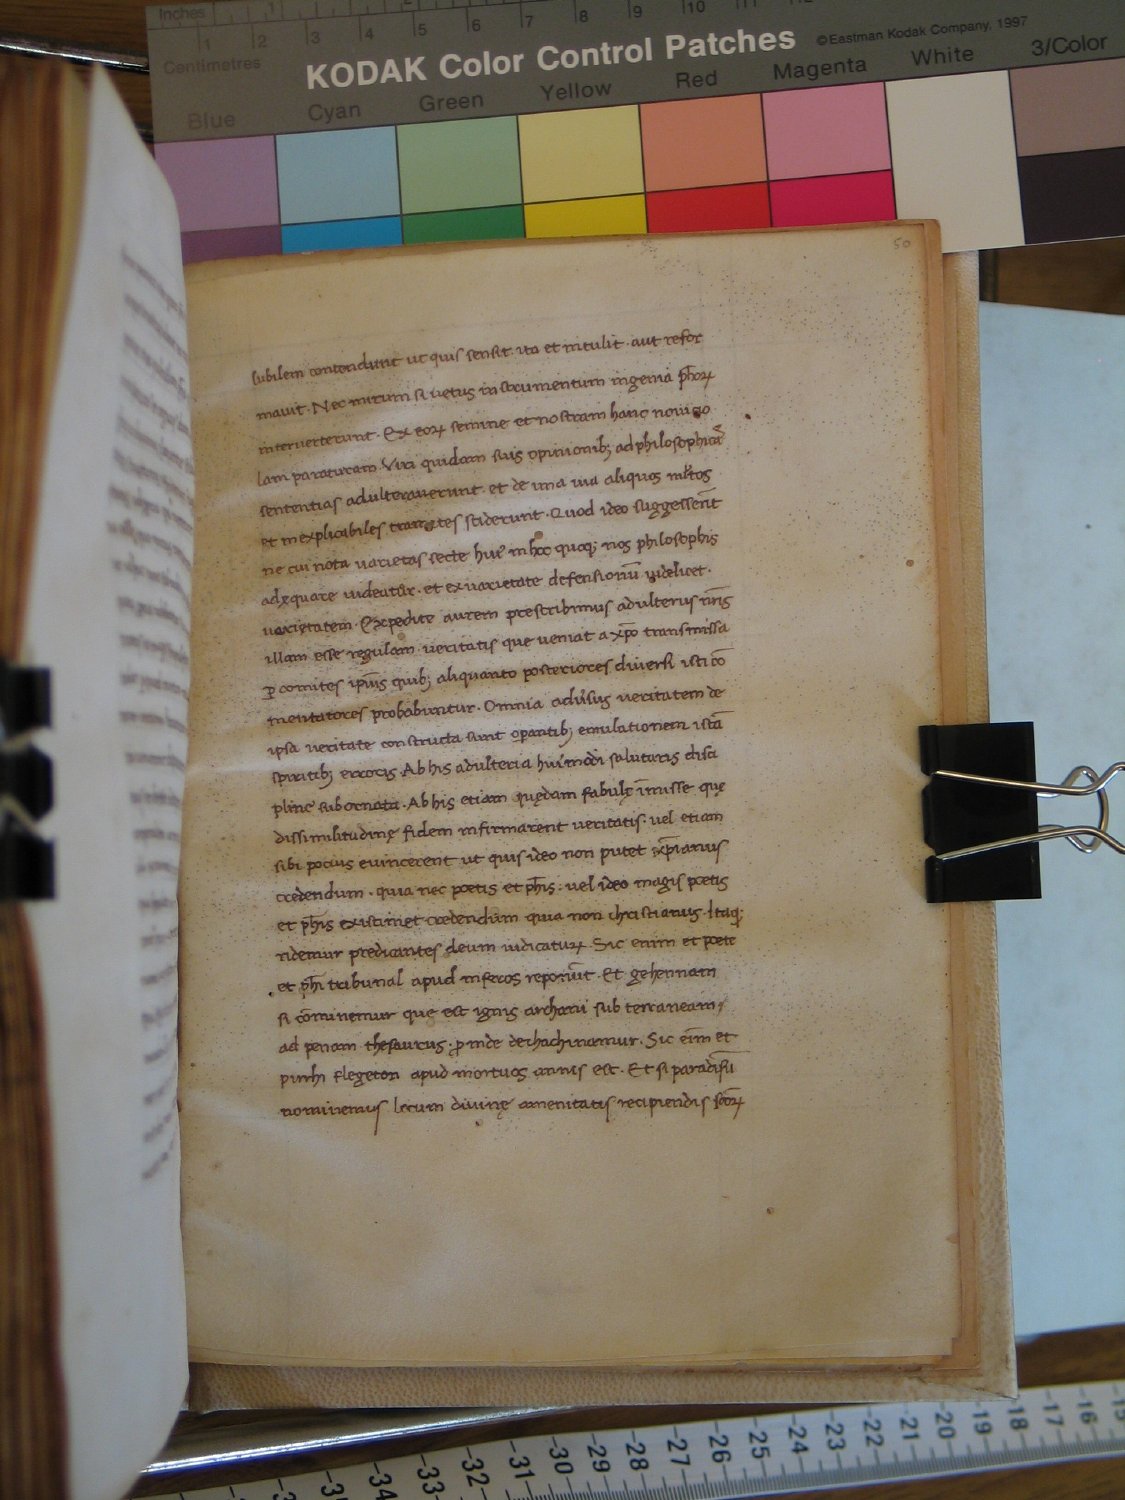 Inches 1 2
1 2 3 4 5 6 7 8 9 10 11 12
Centimetres
KODAK Color Control Patches ©Eastman Kodak Company, 1997
Blue Cyan Green Yellow Red Magenta White 3/Color
50
subilem contendunt ut quis sensit ita et intulit · aut refor
mauit · Nec mirum si uetus instrumentum ingenia ph̄oꝝ
interuerterunt · Ex eoꝝ semine et nostram hanc
lam paraturam Viri quidam suis opinionib; ad philosophicas
sententias adulterauerunt · et de una uia aliquos ml̄tos
et inexplicabiles tramites sciderunt · Quod ideo suggesserīt
ne cui nota uarietas secte hui᷒ in hoc quoq; nos philosophis
adęquare uideatur · et ex uarietate defensionū uidelicet ·
uarietatem · Expedite autem prescribimus adulteris nr̄is
illam esse regulam ueritatis que ueniat a xp̄o transmissa
ꝑ comites ip̄ius quib; aliquanto posteriores diuersi isti cō
mentatores probabuntur · Omnia aduʼsus ueritatem de
ipsa ueritate constructa sunt operantib; emulationem istā
spiritib; erroris Ab his adulteria hui᷒modi salutaris disci
plinę subornata · Ab his etiam quędam fabulę īmisse quę
dissimilitudinę fidem infirmarent ueritatis uel etiam
sibi pocius euincerent ut quis ideo non putet xp̄ianus
credendum · quia nec poetis et ph̄is : uel ideo magis poetis
et ph̄is existimet credendum quia non christianus · Itaq;
ridemur predicantes deum iudicaturꝝ · Sic enim et poete
et ph̄i tribunal apud inferos reponūt · Et gehennam
si cōminemur que est ignis archani subterraneam
ad penam thesaurus · ꝓinde dechachinamur · Sic eīm et
pirrhi flegeton apud mortuos amnis est · Et si paradisū
nominemus locum diuinę amenitatis recipiendis sc̄oꝝ
-34 -33 -32 -31 -30 -29 -28 -27 -26 -25 -24 -23 -22 -21 -20 -19 -18 -17 -16 -15